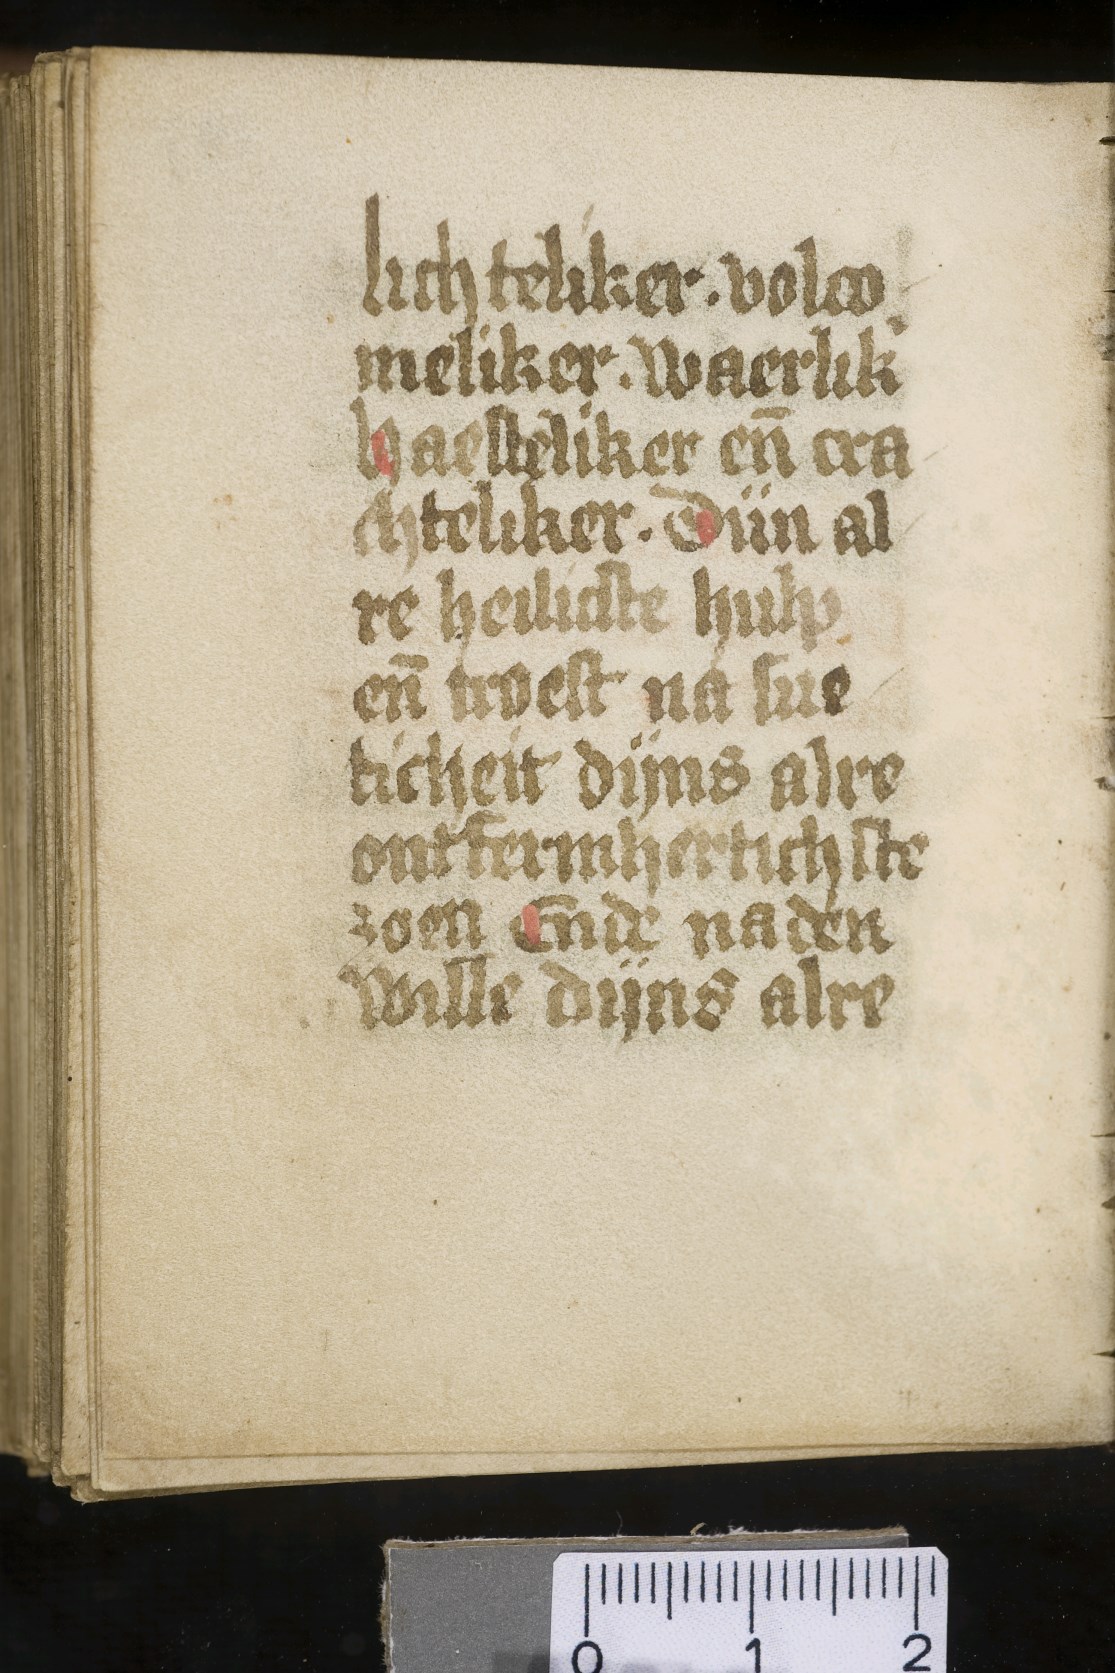 lichteliker. volco
meliker. waerlik'
haesteliker en̄ cra
chteliker. Diin al
re heilichste hulp
en̄ troest na sue
ticheit dijns alre
ontfermhertichste
zoen Ende na den
wille dijns alre
0 1 2